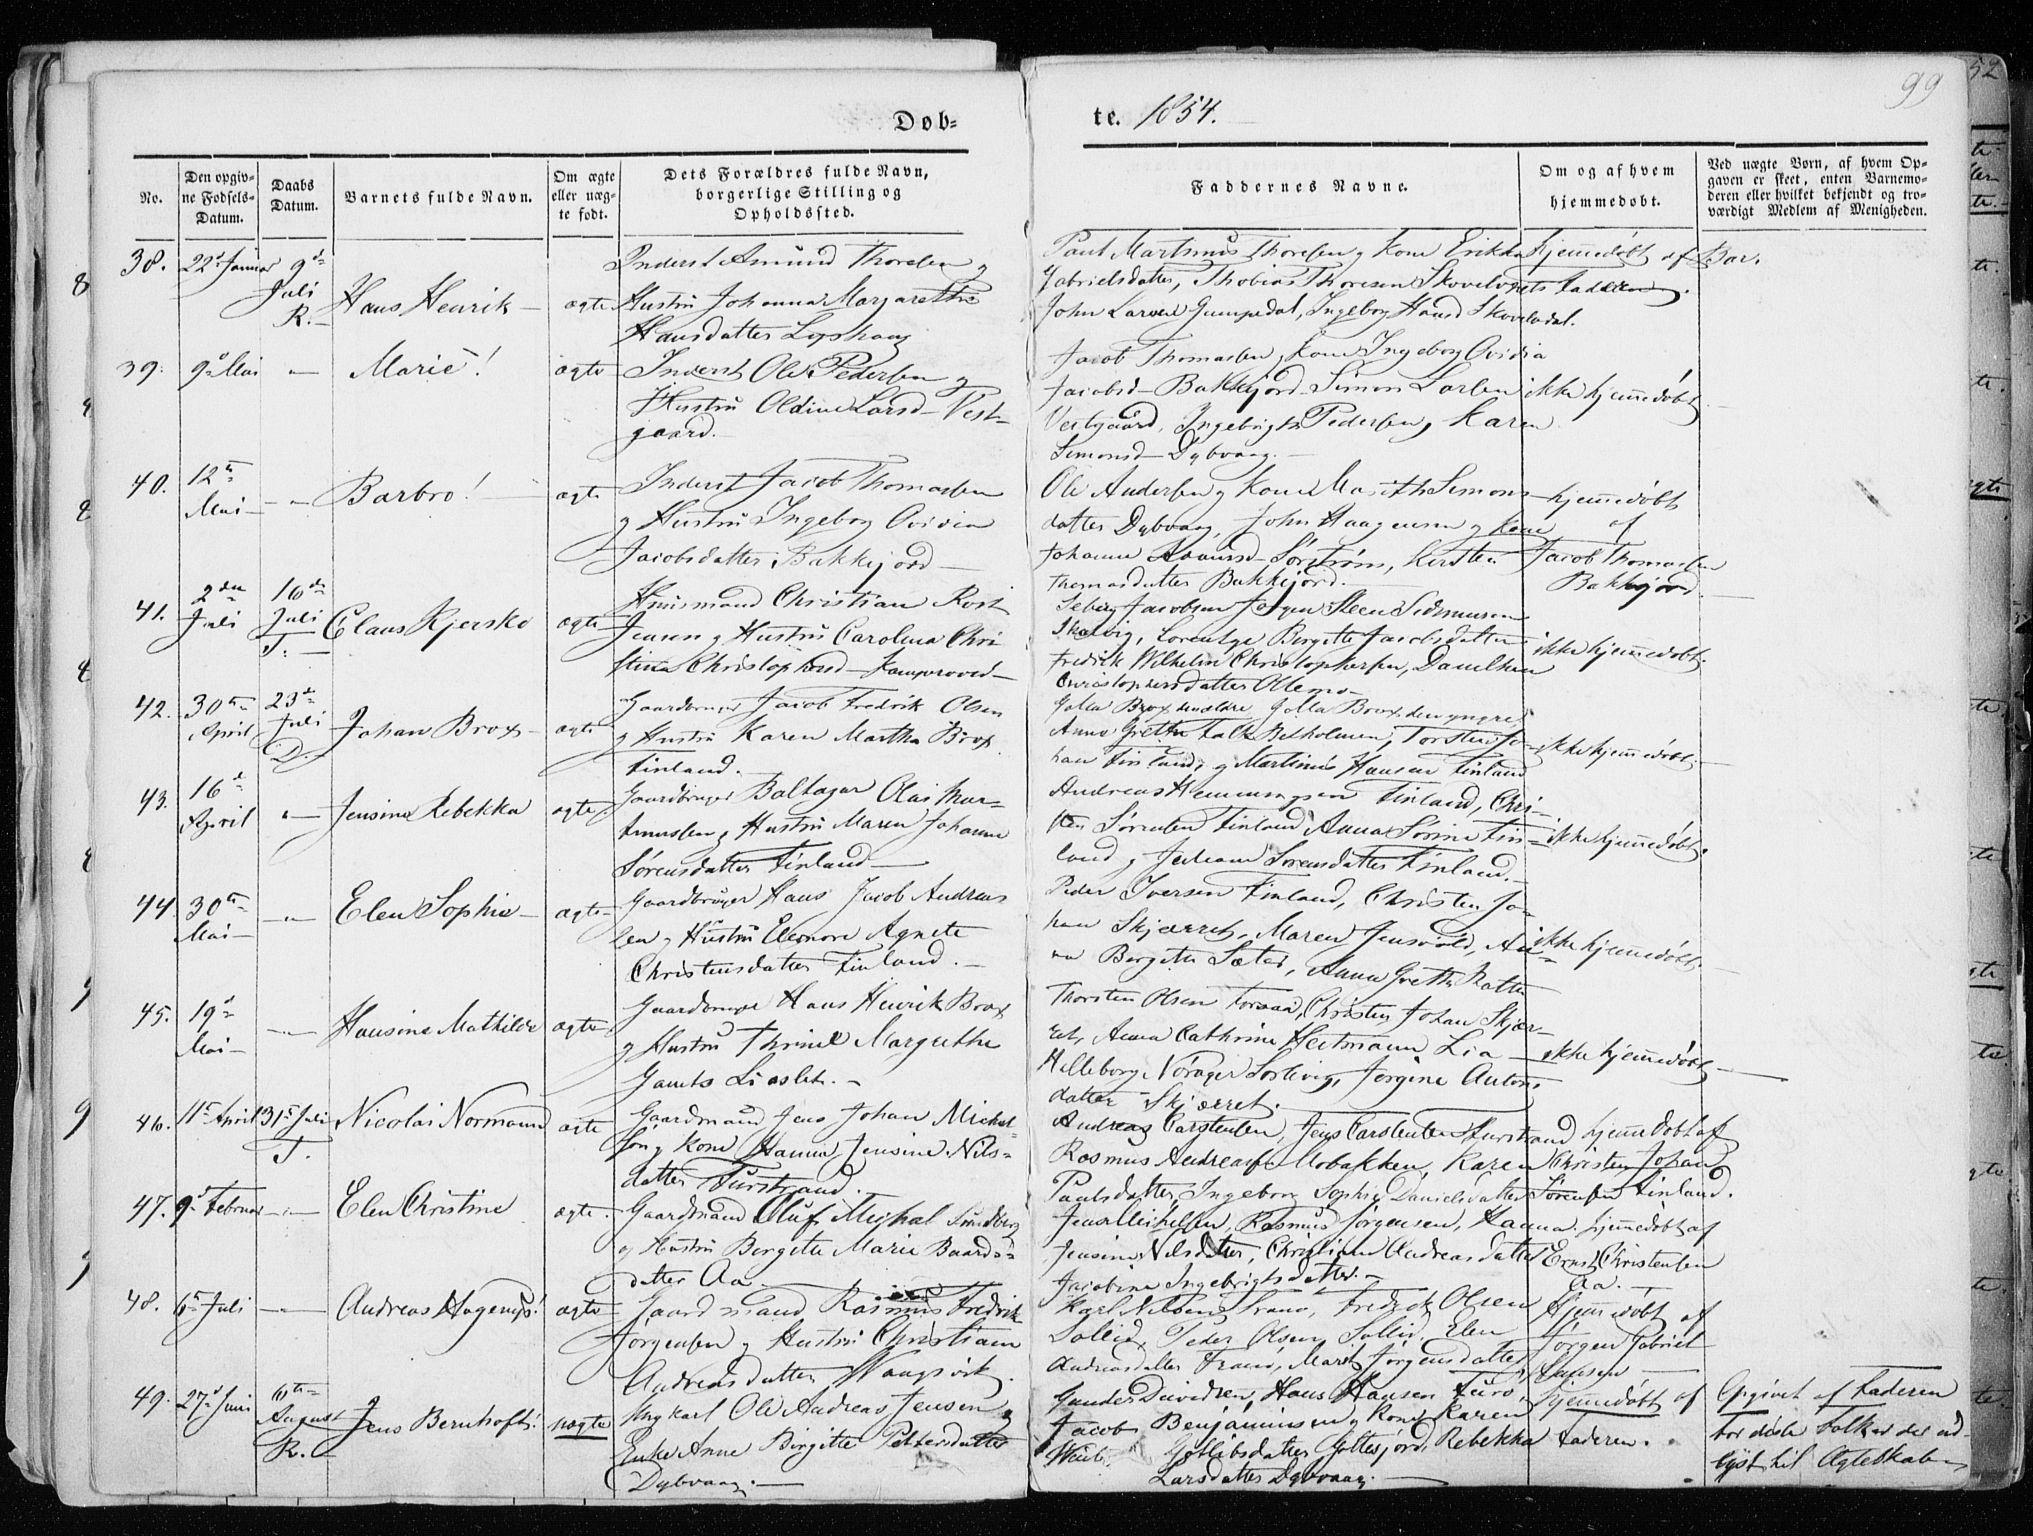 99
52
Døb=
te. 1854.
No.
Den opgiv=
ne Fødsels=
Datum.
Daabs
Datum.
Barnets fulde Navn.
Om ægte
eller uæg=
te født.
Dets Forældres fulde Navn,
borgerlige Stilling og
Opholdssted.
Faddernes Navne.
Om og af hvem
hjemmedøbt.
Ved uægte Børn, af hvem Op=
gaven er skeet, enten Barnemo=
deren eller hvilket bekjendt og tro=
værdigt Medlem af Menigheden.
38. 22d Januar 9de
Juli
R.
Hans Henrik - ægte
Inderst Amund Thoresen og
Hustru Johanna Margarethe
Hansdatter Lophaug
Paul Martinus Thoresen og Kone Erikka
Gabrielsdatter, Thobias Thoresen
John Larsen Gumpedal, Ingeborg Hansd
hjemmedøbt af
Faderen.
39. 9d Mai " Marie! ægte
Inderst Ole Pedersen og
Hustru Oldine Larsd- Vest-
gaard.
Jacob Thomassen, Kone Ingeborg Ovidia
Jacobsd- Bakkejord Simon Larsen
Vestgaard, Ingebrigt Pedersen, Karen
Simonsd- Dybvaag.
ikke hjemmedøbt
40. 12te
Mai " Barbro! ægte
Inderst Jacob Thomassen
og Hustru Ingeborg Ovidia
Jacobsdatter, Bakkejord
Ole Andersen og Kone Marith Simons-
datter Dybvaag, John Haagensen og Kone
Johanna Sørstrøm, Kirsten
Thomasdatter Bakkejord.
hjemmedøbt
af
Jacob Thomassen
Bakkejord.
41. 2den
Juli
16de
Juli
T.
Claus Kjerske ægte
Huusmand Christian Rost
Jensen og Hustru Carolina Chri
stina Christophersd-
Jacobsen Jørgen Steen
Skatvig, Lorentze Birgitte Jacobsdatter
Fredrik Wilhelm Christophersen,
Christophersdatter
ikke hjemmedøbt.
42. 30te
April
23de
Juli
D.
Johan Brox - ægte
Gaardbruger Jacob Fredrik Olsen
og Hustru Karen Martha Brox
Finland.
Golla Brox den ældre, Golla Brox den yngre,
Anne Grethe Falk Torsten Jo-
han Finland, og Martinus Hansen Finland
ikke hjemmedøbt.
43. 16de
April " Jensine Rebekka ægte
Gaardbruger Baltazar Olai Mor-
tensen og Hustru Maren Johanna
Sørensdatter Finland
Andreas Henningsen Finland, Chri-
sten Sørensen Finland, Anna Sørine Fin-
land og Juliane Sørensdatter Finland.
ikke hjemmedøbt.
44 30te
Mai " Elen Sophie ægte
Gaardbruger Hans Jacob Andreas
sen og Hustru Eleonore Agnete
Christensdatter Finland.
Peder Iversen Finland, Christen Jo-
han Skjærret, Maren Jensvold, An-
na Bergitte Sæter, Anna Grethe
ikke hjemmedøbt.
45. 19de
Mai " Hansine Mathilde ægte
Gaardbruger Hans Henrik Brox
og Hustru Thrine Margrethe
Liaslet.
Thorsten Olsen Forsaa, Christen Johan Skjær-
ret, Anna Cathrine Heitmann Lia
Helleborg Norager Sortevig, Jørgine Anton-
datter Skjærret.
ikke hjemmedøbt
46. 11te April 31te Juli
T.
Nicolai Normann ægte
Gaardmand Jens Johan Michel-
sen og Kone Hanna Jensine Nils-
datter
Andreas Carstensen, Jens Carstensen
Rasmus Andreassen Mobakken, Karen
Paulsdatter, Ingeborg Sophie Danielsdatter
hjemmedøbt af
Christen Johan
Sørensen Finland.
47. 9d Februar " Elen Christine ægte
Gaardmand Oluf Michal Sundberg
og Hustru Bergitte Marie Baards-
datter Aa
Jens Michelsen, Rasmus Jørgensen, Hanna
Jensine Nilsdatter, Christiane Andreasdatter
Jacobine Ingebrigtsdatter.
hjemmedøbt af
Ernst Christensen
Aa.
48. 6te Juli " Andreas Hagerup! ægte
Gaardmand Rasmus Fredrik
Jørgensen og Hustru Christiane
Andreasdatter Vaagsvik.
Karl Nilsen Trano, Fredrik Olsen
Sollid, Peder Olsen Sollid, Elen
Andreasdatter Marit Jørgensdatter
hjemmedøbt af
Jørgen Gabriel
Hansen
49. 27de Juni 6te
August
R.
Jens Bernhoft! uægte
Ungkarl Ole Andreas Jensen og
Enke Anne Birgitte Pettersdatter
Dybvaag.
Gunder Davidsen, Hans Hansen
Jacob Benjaminsen og Kone Karen
Gotlibsdatter Rebekka
Larsdatter Dybvaag.
hjemmedøbt af
Faderen.
Opgivet af Faderen
lyst til Ægteskab